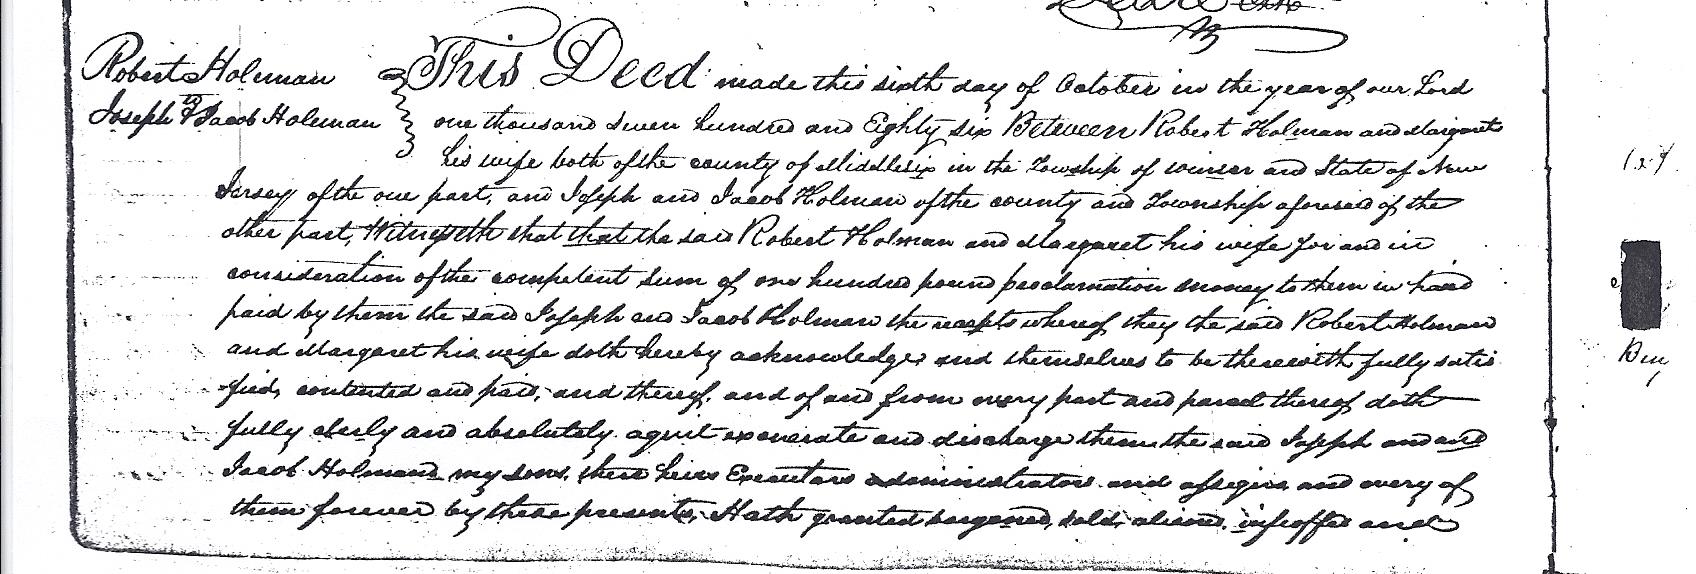 Robert Holman
to
Joseph & Jacob Holeman
This Deed made this sixth day of October in the year of our Lord
one thousand seven hundred and Eighty six Between Robert Holman and Margaret
his wife both of the county of Middlesix in the Township of winser and State of New
Jersey of the one part, and Joseph and Jacob Holman of the county and Township aforesaid of the
other part, Witnesseth that that the said Robert Holman and Margaret his wife for and in
consideration of the competent sum of one hundred pound proclamation money to them in hand
paid by them the said Joseph and Jacob Holman the receipts whereof they the said Robert Holman
and Margaret his wife doth hereby acknowledge and themselves to be therewith fully satis
fied, contented and paid, and thereof, and of and from every part and parcel thereof doth
fully clerly and absolutely aquit exonerate and discharge them the said Joseph and and
Jacob Holmans my sons, there heirs Executars administrators and assigns and every of
them forever by these presents, Hath granted bargened, sold, aliened, infeoffed and